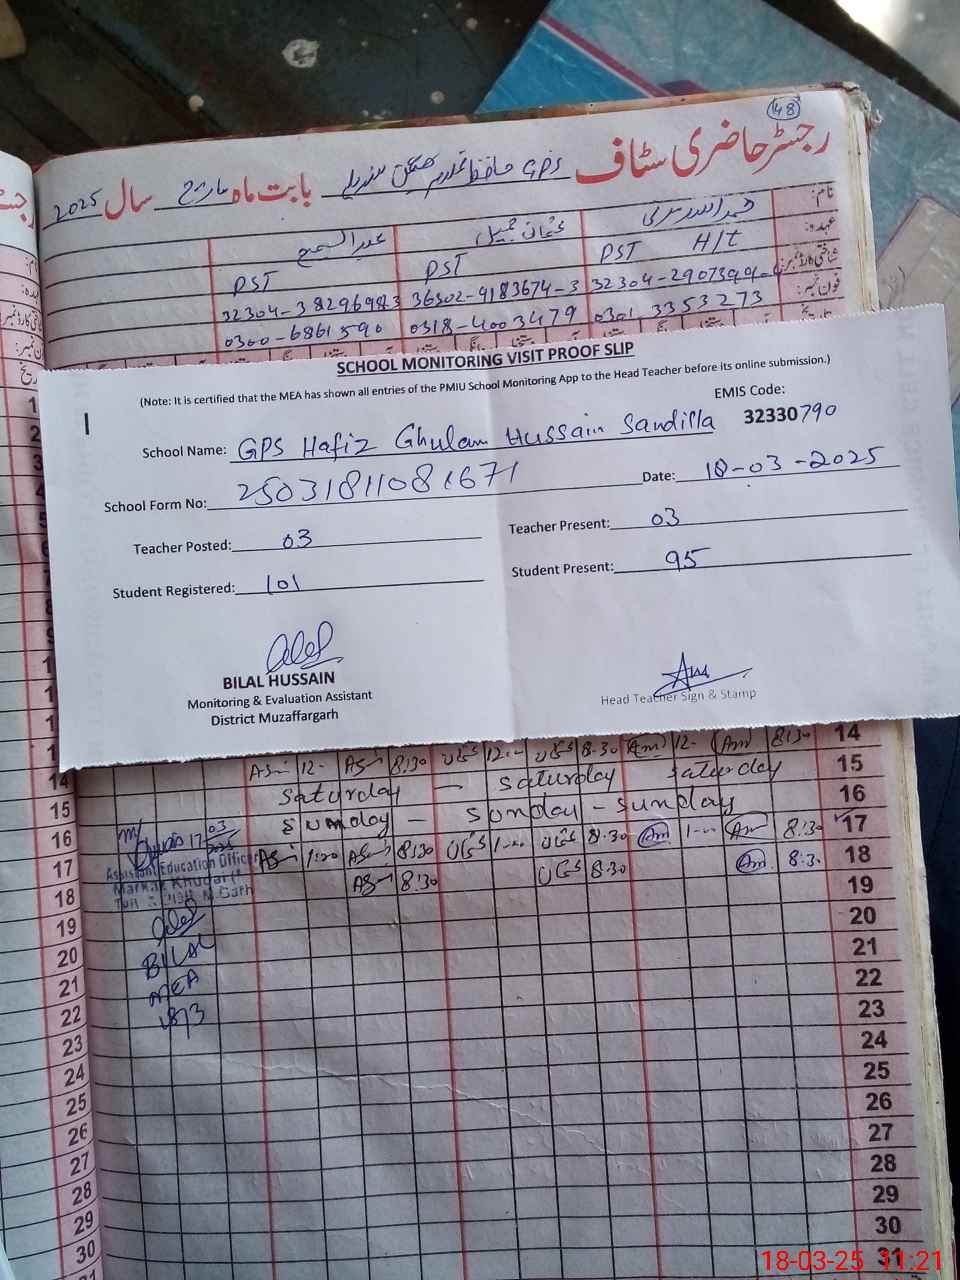 48
رجسٹر حاضری سٹاف GPS حافظ غلام بابت ماہ مارچ سال 2025
نام:
عہدہ: H/t PST PST PST
شناختی کارڈ نمبر: 36302-9183674-3 32304-3829698-3
فون نمبر: 0301-3353273 0318-4003479 0300-6861590
SCHOOL MONITORING VISIT PROOF SLIP
(Note: It is certified that the MEA has shown all entries of the PMIU School Monitoring App to the Head Teacher before its online submission.)
EMIS Code:
School Name: GPS Hafiz Ghulam Hussain Sandilla 32330790
School Form No: 25031811081671 Date: 18-03-2025
Teacher Posted: 03 Teacher Present: 03
Student Registered: 101 Student Present: 95
BILAL HUSSAIN
Monitoring & Evaluation Assistant
District Muzaffargarh
Head Teacher Sign & Stamp
12- 8:30 12-- 8:30 12- 8:30 14
14 Saturday - Saturday Saturday 15
15 Sunday - Sunday - Sunday 16
16 17/03/2025 1:00 8:30 1-00 8:30 1-00 8:30 17
17 Assistant Education Officer 8:30 8:30 8:30 18
18 19
19 20
20 BILAL 21
21 MEA 22
22 18/3 23
23 24
24 25
25 26
26 27
27 28
28 29
29 30
30 31
18-03-25 11:21